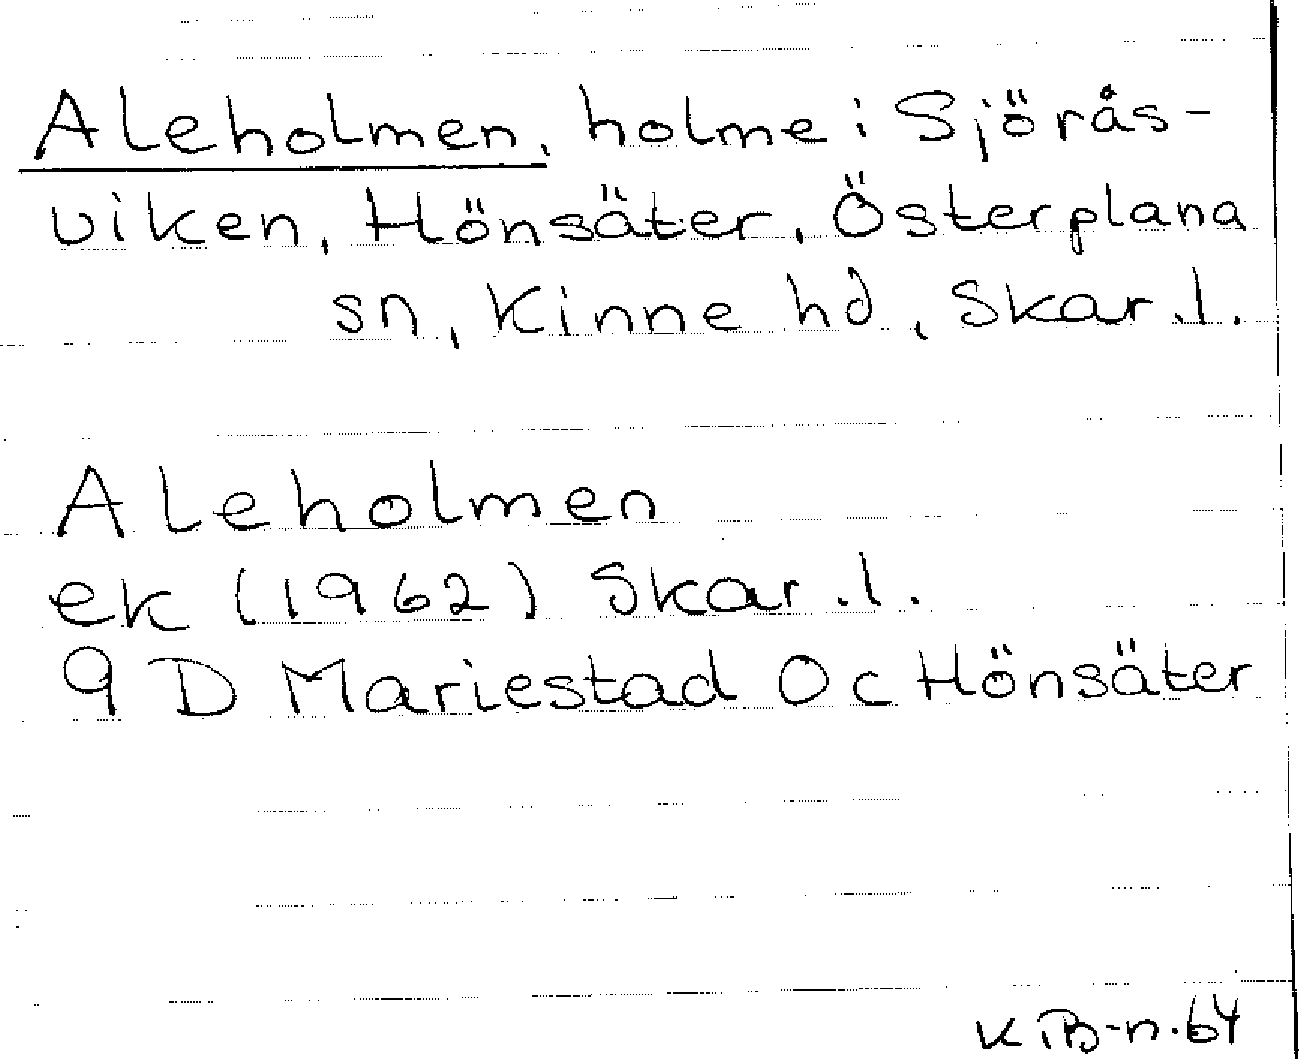 Aleholmen, holme i Sjörås-
viken, Hönsäter, Österplana
sn, Kinne hd, Skar.l.
Aleholmen
ek (1962) Skar.l.
9 D Mariestad Oc Hönsäter